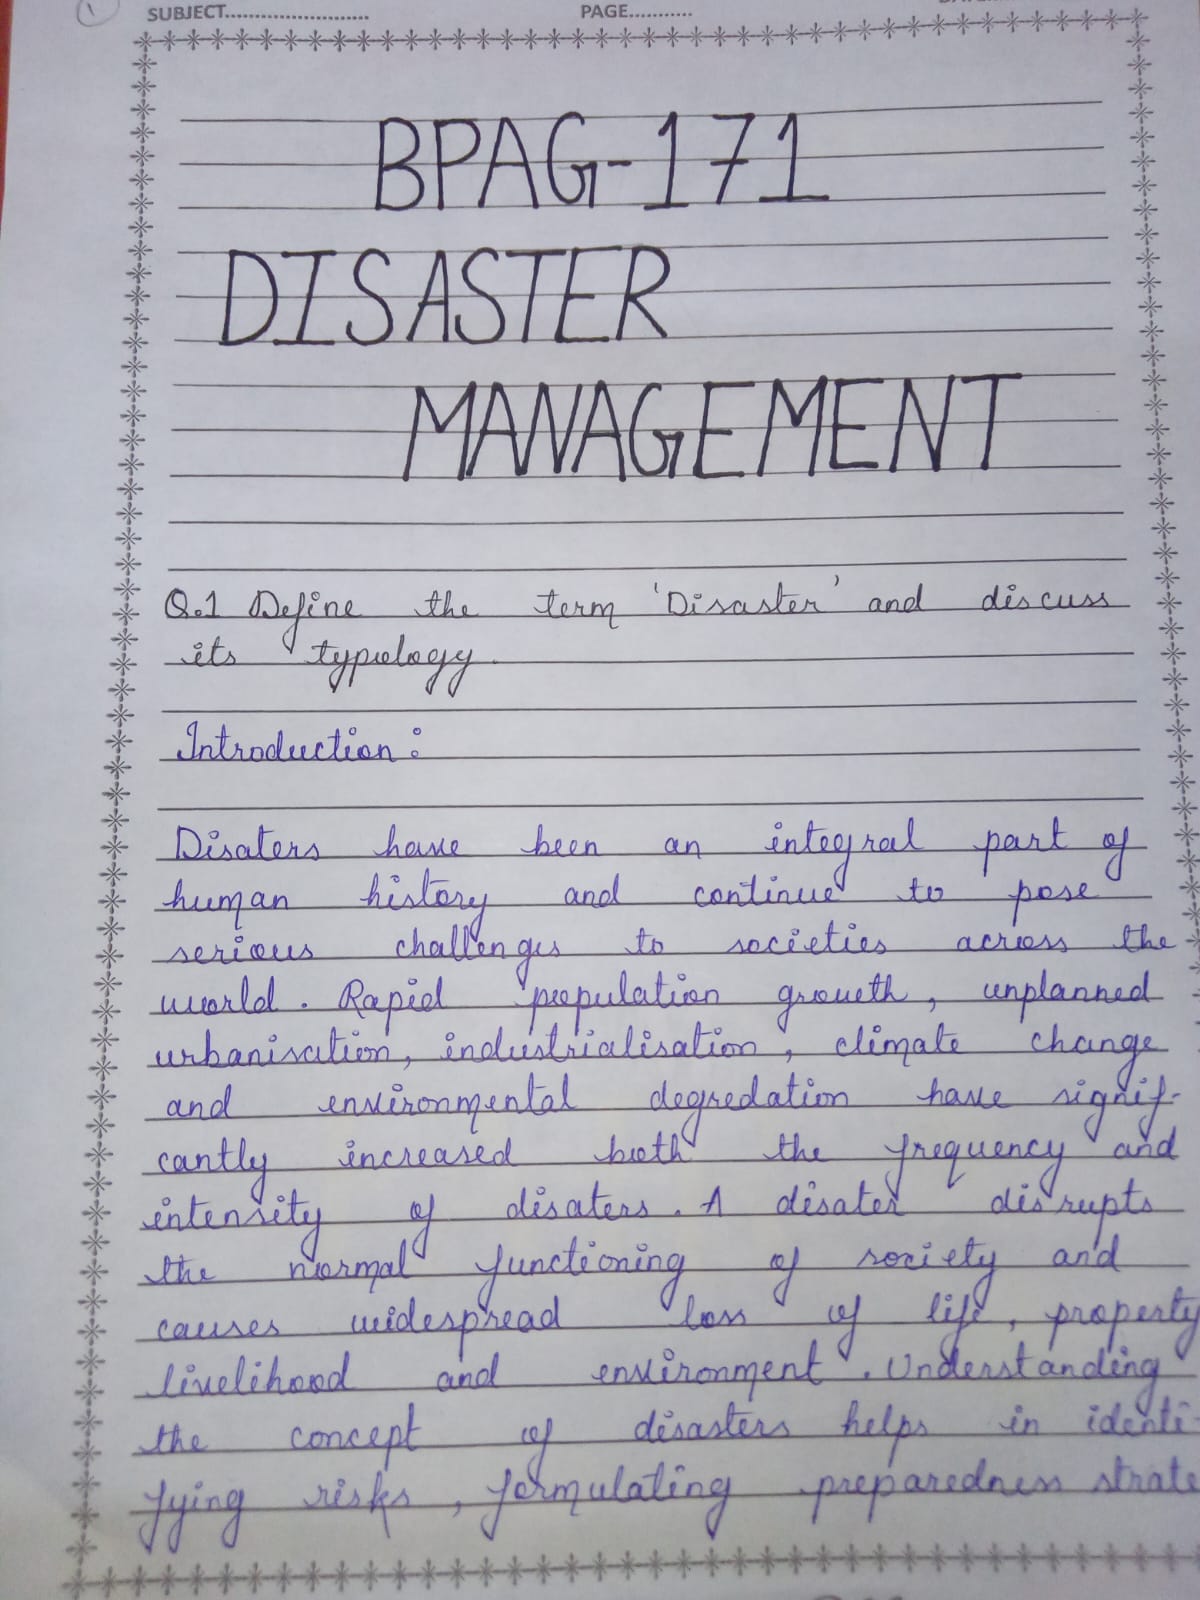 SUBJECT........................ PAGE...........
BPAG-171
DISASTER
MANAGEMENT
Q.1 Define the term 'Disaster' and discuss
its typology.
Introduction :
Disaters have been an integral part of
human history and continue to pose
serious challenges to societies across the
world. Rapid population growth, unplanned
urbanisation, industrialisation, climate change
and environmental degredation have signif-
cantly increased both the frequency and
intensity of disaters. A disater disrupts
the normal functioning of society and
causes widespread loss of life, property
livelihood and environment. Understanding
the concept of disasters helps in identi-
fying risks, formulating preparedness strate